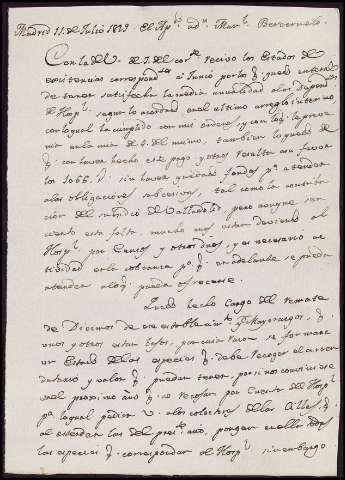 Madrid 11. de Julio 1829. El Ap.º ad.ºr Man.l Berrernelo.
Con la de V. de 7. del cor.te recivo los Estados de
existencias correspond.tes a Junio por los q.e quedo enterado
de haver satisfecho la media anualidad a los depend.tes
de Hosp.l segun lo acordado en el ultimo arreglo interino
con lo qual ha cumplido con mis ordenes y con lo q.e le preve
nia en la mia de 4. del mismo, tambien lo quedo de
q.e con haver hecho este pago y otros resulta a su favor
los 1066. r.s sin haver quedado fondos p.a atender
a las obligaciones subcesivas, tal como la contribu
ción del subsidio de Valladolid, pero aunque sea
cierto esta falta, mucho nos estan deviendo al
Hosp.l por Censos y otros ramos, y es necesario ac
tividad en la cobranza p.a q.e en adelante se pueda
atender a lo q.e pueda ofrecerse.
Quedo hecho cargo del remate
de Diezmos de ese establecim.to y Mayorazgos, q.e
unos y otros estan bajos, por cuia razon se formara
un Estado de las especies q.e debe recoger el arren
datario y valor q.e puedan tener, por si nos conviniere
en el proximo año q.e se recojan por cuenta del Hosp.l
p.a lo qual pedira V. a los colectores de las Cillas q.e
al estender las del pres.te año, pongan en ellas todas
las especies q.e correspondan al Hosp.l sin embargo